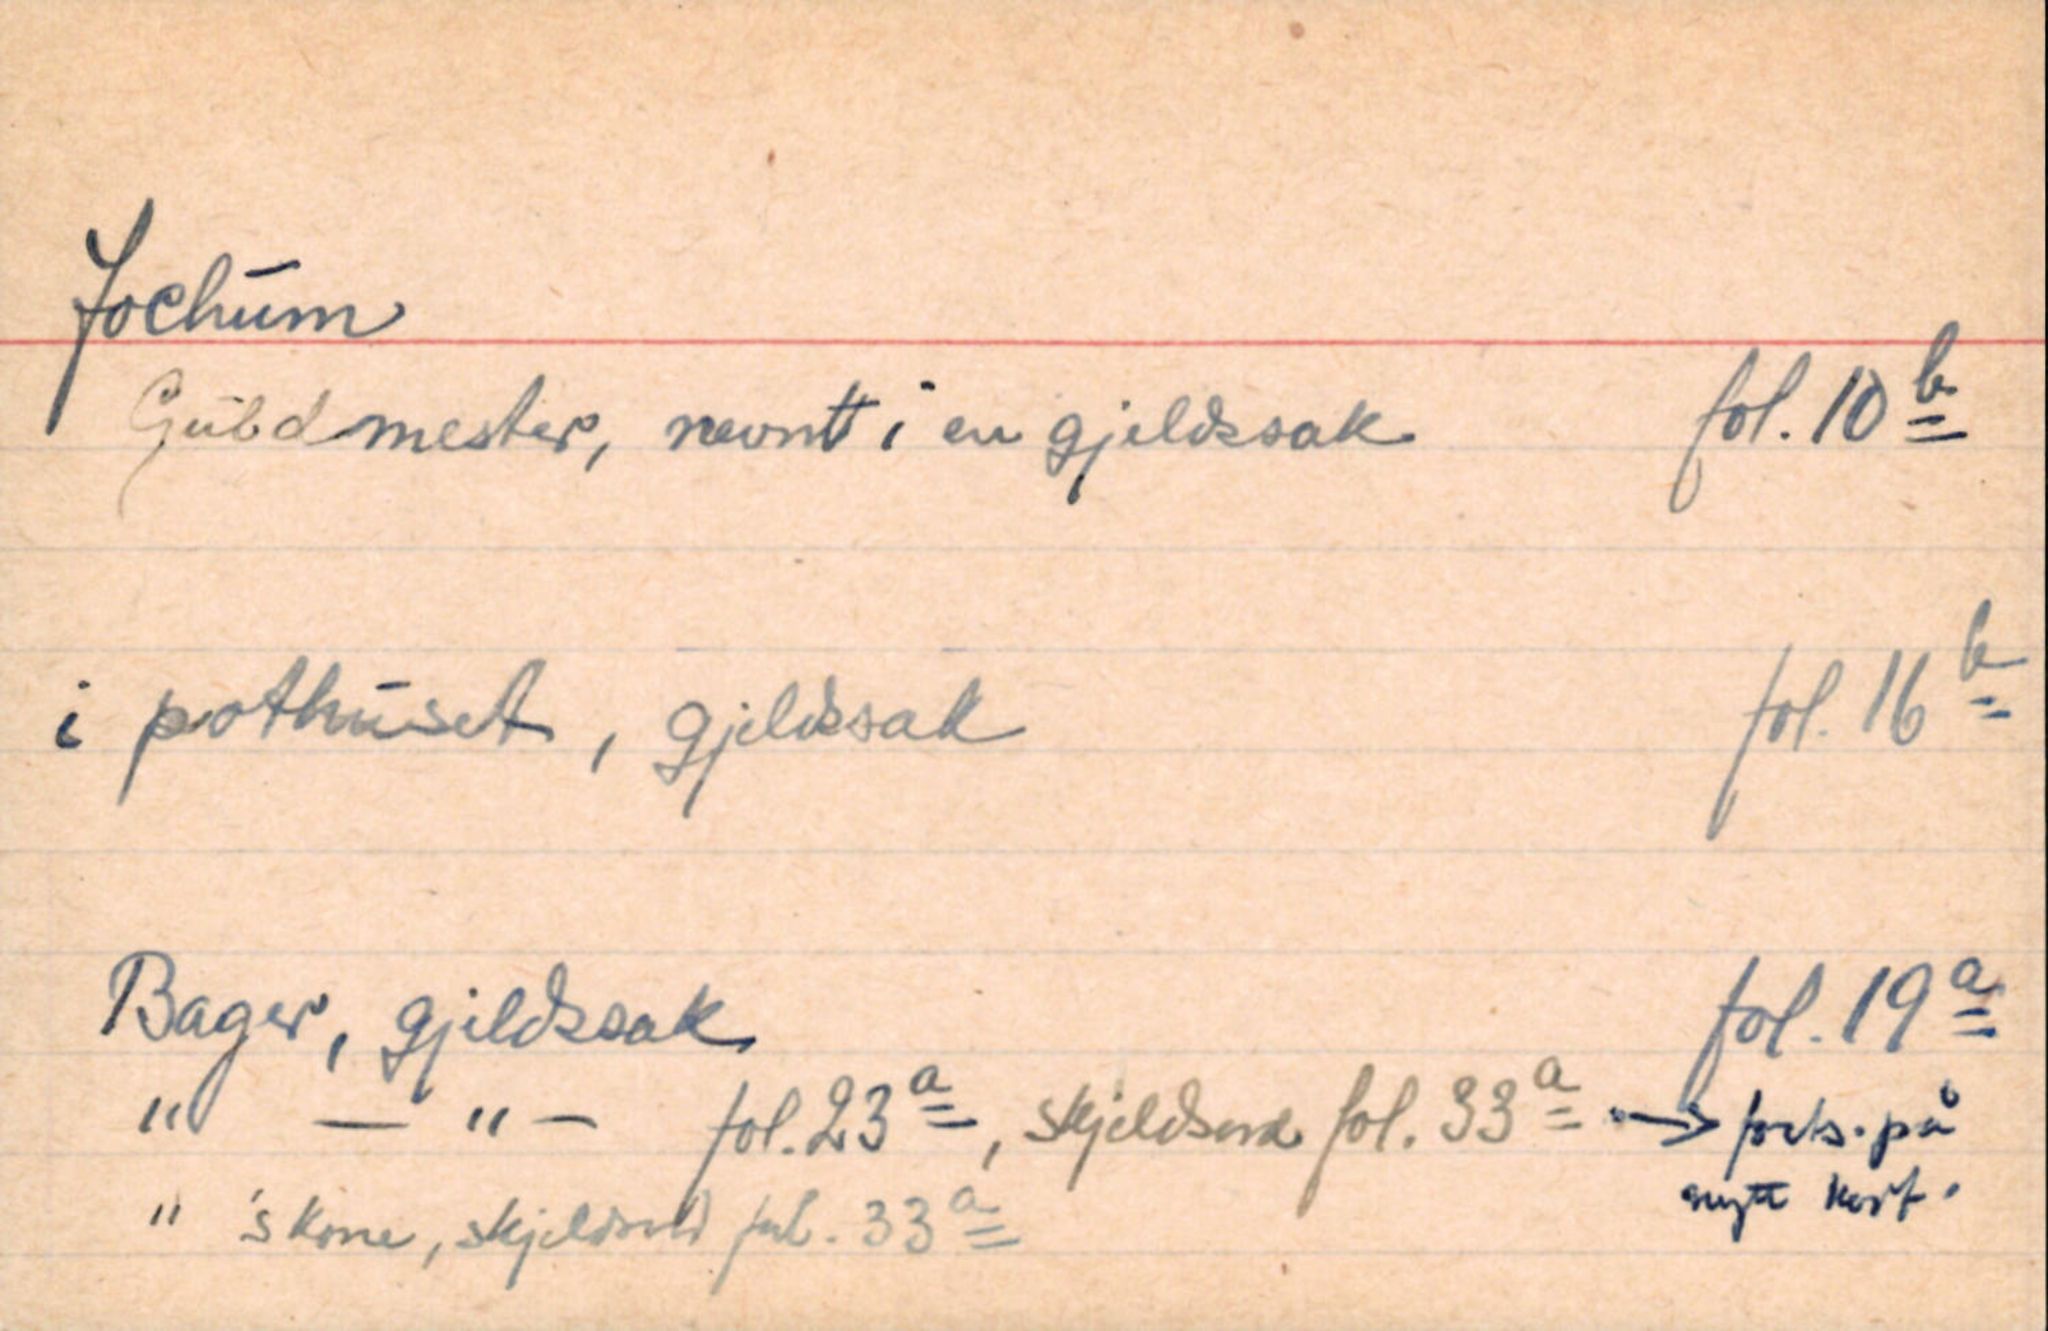 Jochum
Guldmester, nevnt i en gjeldssak fol. 10 b
i pothuset, gjeldssak fol. 16 b
Bager, gjeldssak fol. 19 a
" — " — fol. 23 a, skjeldsord fol. 33 a → forts. på
nytt kort.
" 's kone, skjeldsord fol. 33 a